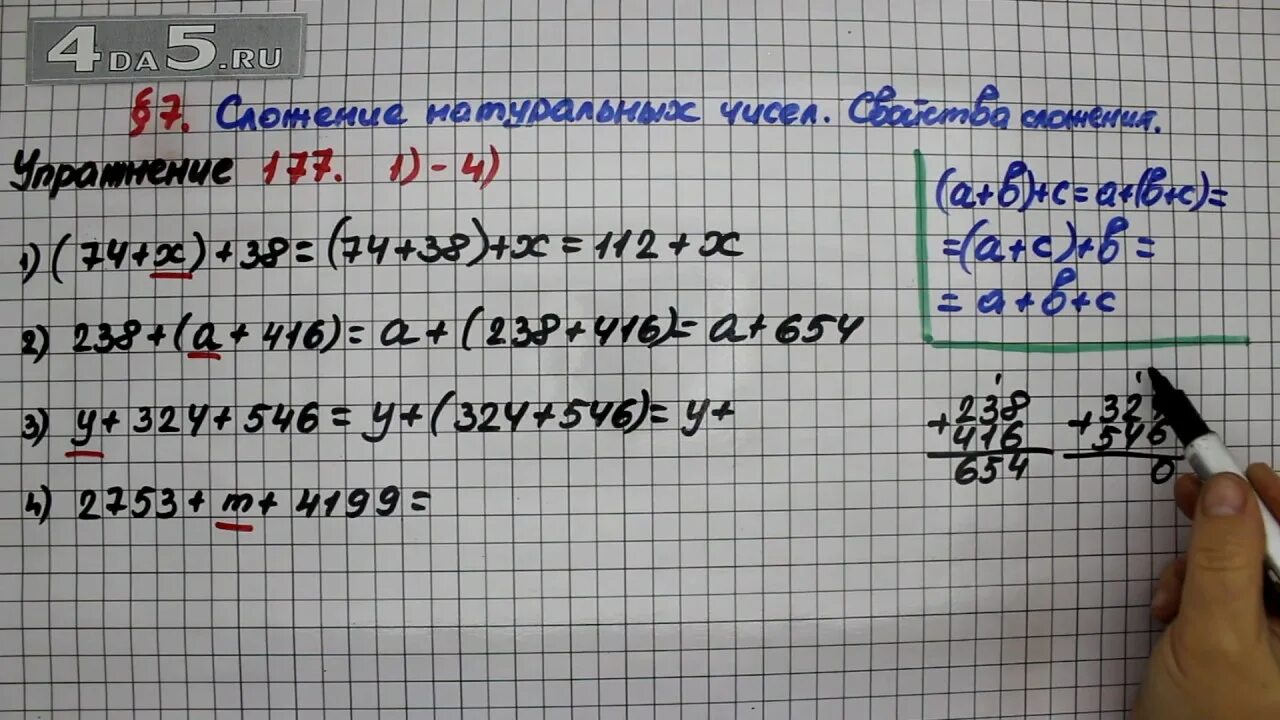 4DA5.RU
§7. Сложение натуральных чисел. Свойства сложения.
Упражнение 177. 1)-4)
1) (74+x)+38=(74+38)+x=112+x
2) 238+(a+416)=a+(238+416)=a+654
3) y+324+546=y+(324+546)=y+
4) 2753+m+4199=
(a+b)+c=a+(b+c)=
=(a+c)+b=
=a+b+c
1
238
+416
654
1
+32
546
0